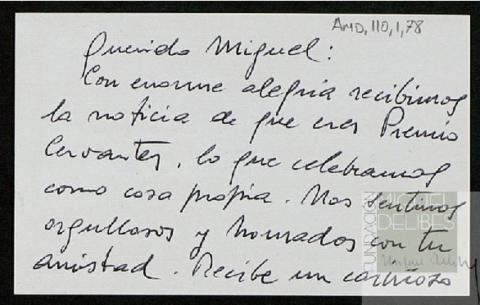 AMD,110,1,78
Querido Miguel:
Con enorme alegria recibimos
la noticia de que eres Premio
Cervantes, lo que celebramos
como cosa propia. Nos sentimos
orgullosos y honrados con tu
amistad. Recibe un cariñoso
FUNDACIÓN
MIGUEL
DELIBES